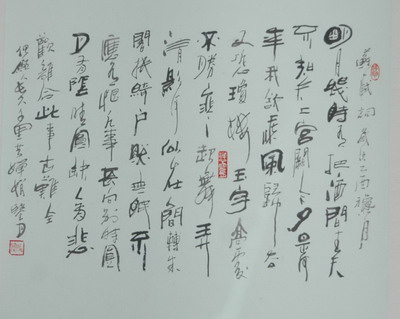 明月幾時有把酒問青天
不知天上宮闕今夕是何
年我欲乘風歸去
又恐瓊樓玉宇高處
不勝寒起舞弄
清影何似在間轉朱
閣低綺戶照無眠不
應有恨何事長向別時圓
月有陰晴圓缺人有悲
歡離合此事古難全
但願人長久千里共嬋娟